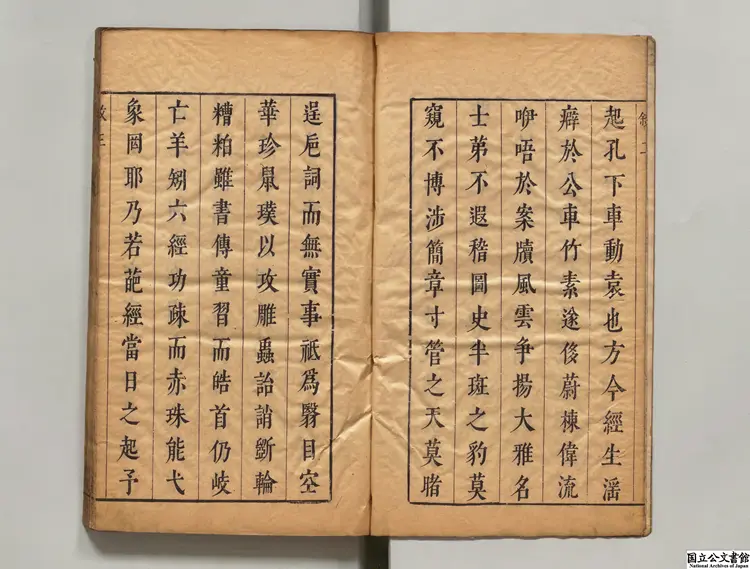 起孔下車動袁也方今經生滛
癖於公車竹素遂俊蔚棟偉流
咿唔於案牘風雲争揚大雅名
士第不遐稽圖史半斑之豹莫
窺不博涉簡章寸管之天莫睹
逞巵詞而無實事祗爲翳目空
華珍鼠璞以攻雕蟲詒誚斵輪
糟粕雖書傳童習而皓首仍岐
亡羊矧六經功疎而赤珠能弋
象罔耶乃若葩經當日之起予
国立公文書館
National Archives of Japan